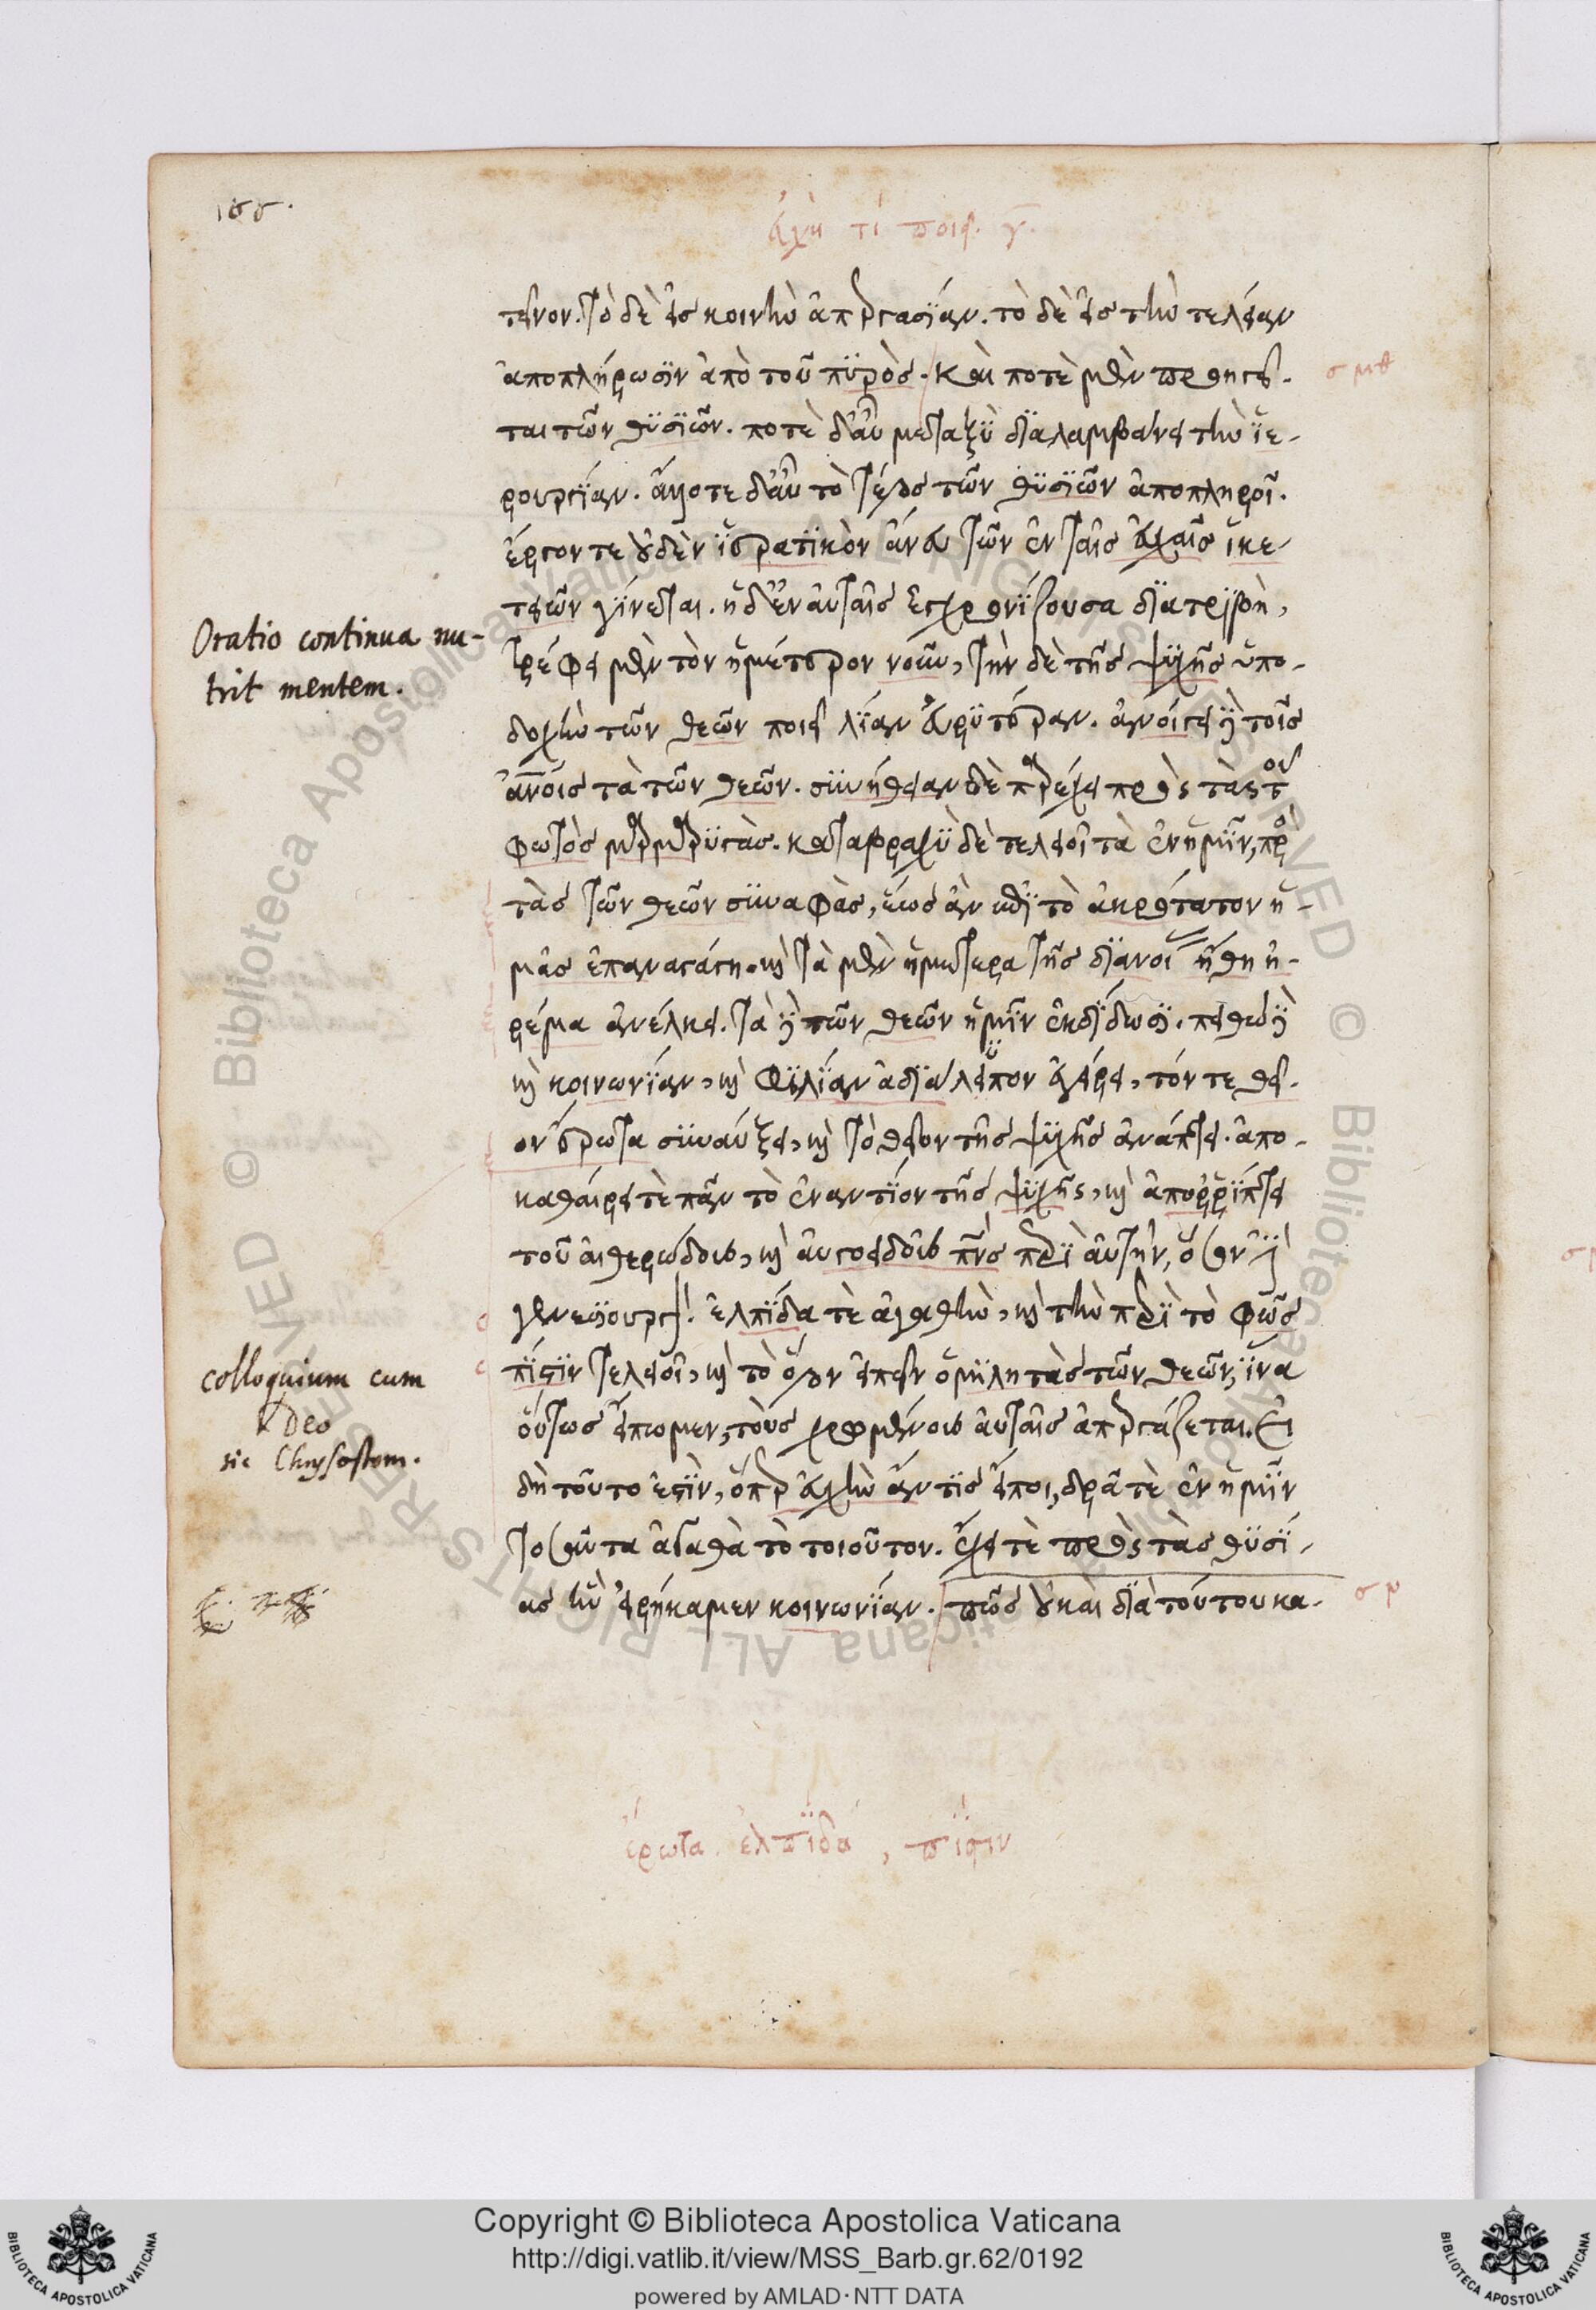 188.
εὐχὴ τί ποιεῖ. γ̄.
τεῖνον. τὸ δὲ εἰς κοινὴν ἀπεργασίαν. τὸ δὲ εἰς τὴν τελείαν
ἀποπλήρωσιν ἀπὸ τοῦ πυρὸς. καὶ ποτὲ μὲν προηγεῖ-
ται τῶν θυσιῶν. ποτὲ δ' αὖ μεταξὺ διαλαμβάνει τὴν ἱε-
ρουργίαν. ἄλλοτε δ' αὖ τὸ τέλος τῶν θυσιῶν ἀποπληροῖ.
ἔργον τε οὐδὲν ἱερατικὸν ἄνευ τῶν ἐν ταῖς εὐχαῖς ἱκε-
τειῶν γίνεται. ἡ δ' ἐν αὐταῖς ἐγχρονίζουσα διατριβὴ,
τρέφει μὲν τὸν ἡμέτερον νοῦν, τὴν δὲ τῆς ψυχῆς ὑπο-
δοχὴν τῶν θεῶν ποιεῖ λίαν εὐρυτέραν. ἀνοίγει δὲ τοῖς
ἀνοις τὰ τῶν θεῶν. συνήθειαν δὲ παρέχει πρὸς τὰς τοῦ
φωτὸς μαρμαρυγάς. καταβραχὺ δὲ τελειοῖ τὰ ἐν ἡμῖν, πρὸς
τὰς τῶν θεῶν συναφὰς, ἕως ἂν ἐπὶ τὸ ἀκρότατον ἡ-
μᾶς ἐπαναγάγῃ. καὶ τὰ μὲν ἡμέτερα τῆς διανοί ἤθη ἠ-
ρέμα ἀνέλκει. τὰ δὲ τῶν θεῶν ἡμῖν ἐκδίδωσι. πειθὼ δὲ
καὶ κοινωνίαν, καὶ φιλίαν ἀδιάλειπτον ἐγείρει, τόν τε θεῖ-
ον ἔρωτα συναύξει, καὶ τὸ θεῖον τῆς ψυχῆς ἀνάπτει. ἀπο-
καθαίρει τὲ πᾶν τὸ ἐναντίον τῆς ψυχῆς, καὶ ἀπορρίπτει
τοῦ αἰθερώδους, καὶ αὐγοειδοῦς πνς περὶ αὐτὴν, ὅσον ἐστὶ
γενεσιουργόν. ἐλπίδα τὲ ἀγαθὴν, καὶ τὴν περὶ τὸ φῶς
πίστιν τελειοῖ, καὶ τὸ ὅλον εἰπεῖν ὁμιλητὰς τῶν θεῶν, ἵνα
οὕτως εἴπωμεν, τοὺς χρωμένους αὐταῖς ἀπεργάζεται. Εἰ
δὴ τοῦτο ἐστὶν, ὅπερ εὐχὴν ἄν τις εἴποι, δρᾶ τὲ ἐν ἡμῖν
τοσαῦτα ἀγαθὰ τὸ τοιοῦτον. ἔχει τὲ πρὸς τὰς θυσί-
ας ἣν εἰρήκαμεν κοινωνίαν. πῶς οὐ καὶ διὰ τούτου κα-
σμθ
σν
Oratio continua nu-
trit mentem.
colloquium cum
Deo
sic Chrysostom.
ἔρωτα. ἐλπίδα, πίστιν
Copyright © Biblioteca Apostolica Vaticana
http://digi.vatlib.it/view/MSS_Barb.gr.62/0192
powered by AMLAD·NTT DATA
BIBLIOTECA APOSTOLICA VATICANA
BIBLIOTECA APOSTOLICA VATICANA